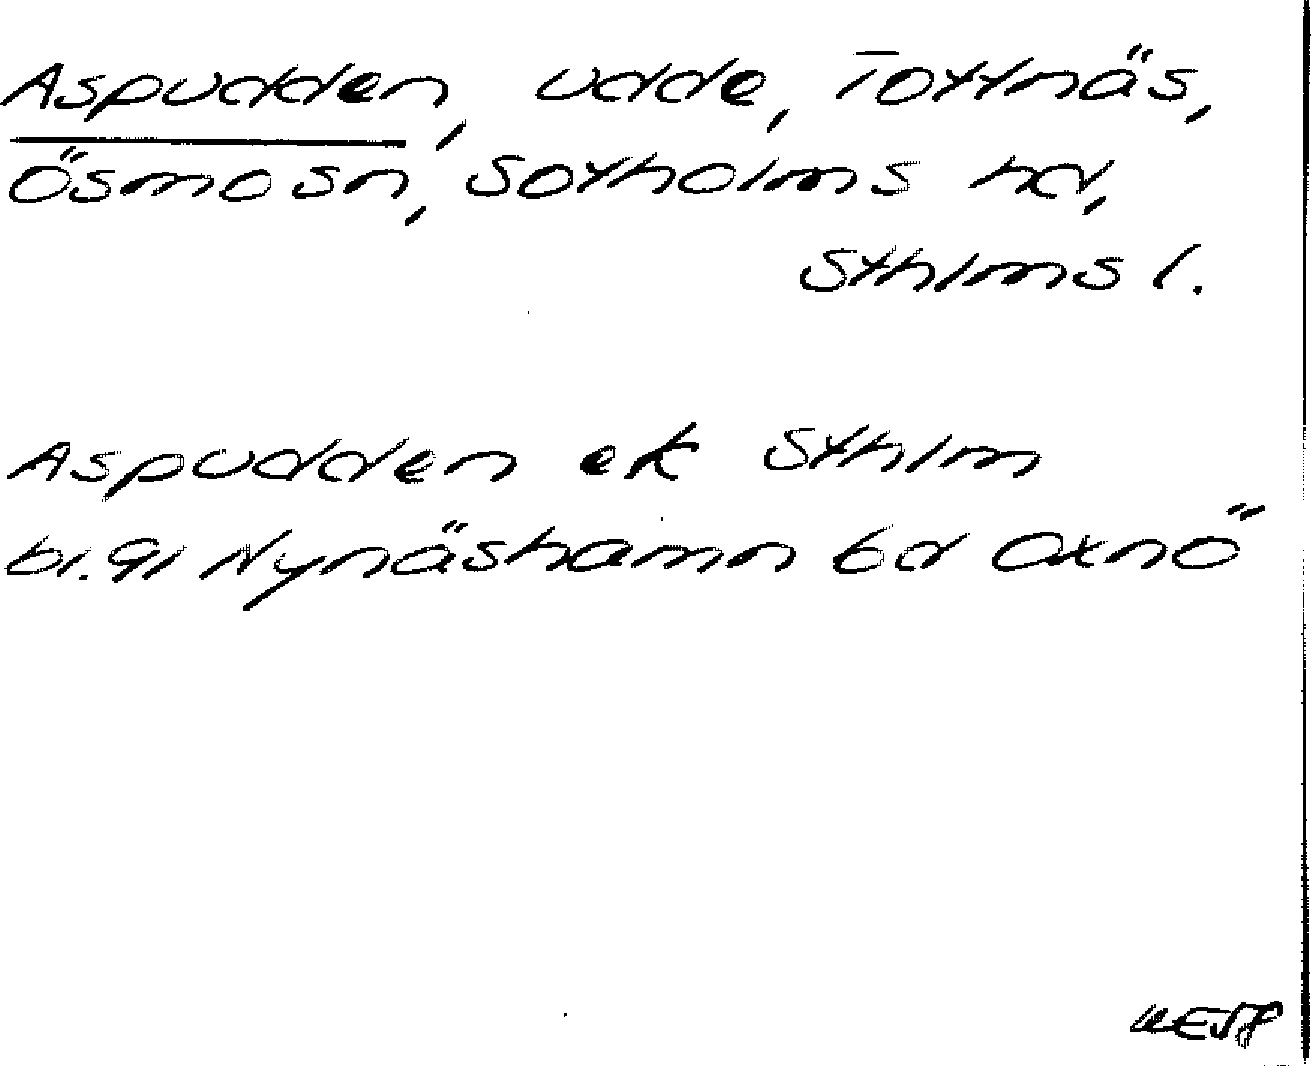 Aspudden, udde, Tottnäs,
Ösmo sn, Sotholms hd,
Sthlms l.
Aspudden ek Sthlm
bl. 91 Nynäshamn 6d Oxnö